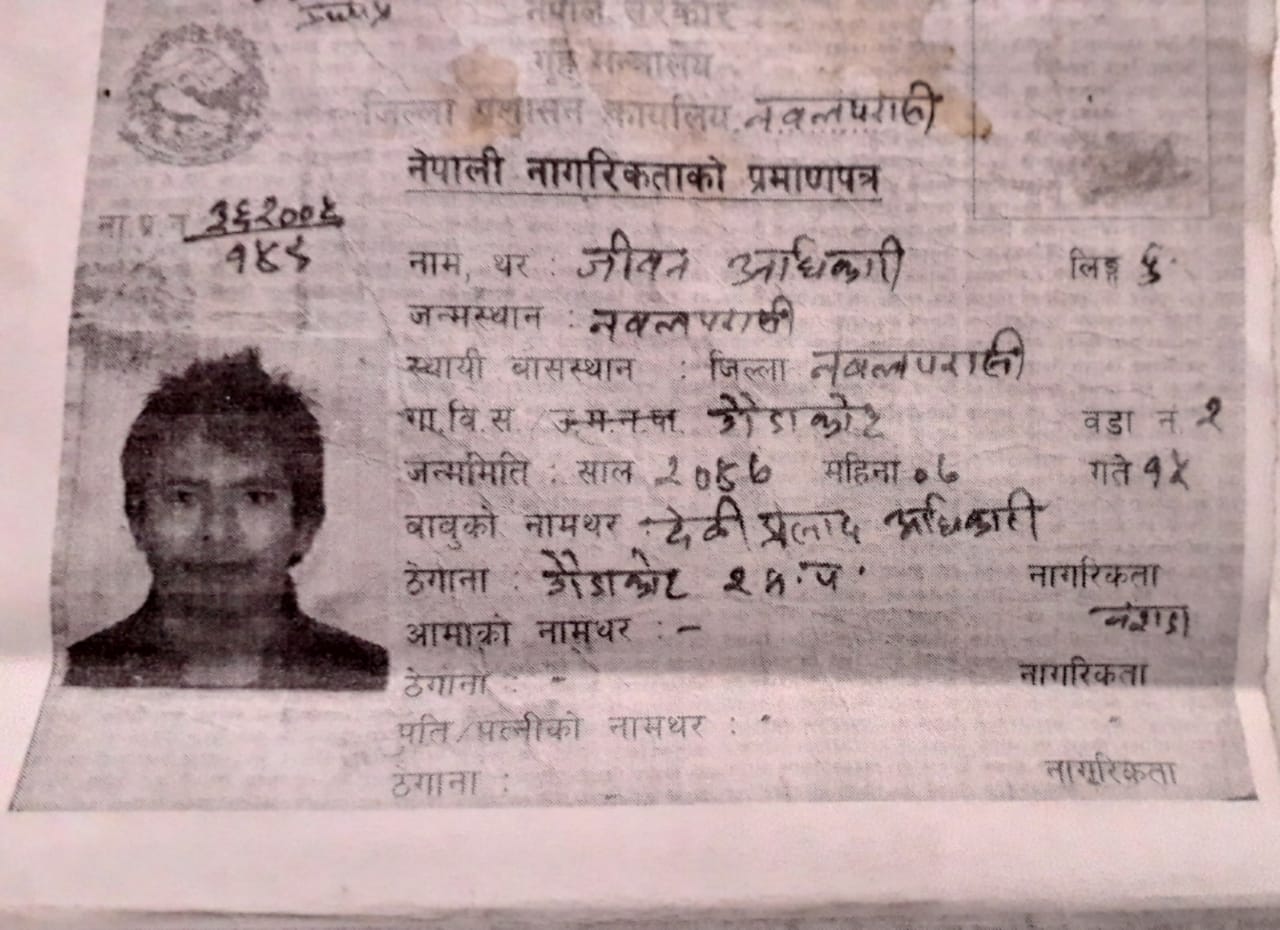 नेपाल सरकार
गृह मन्त्रालय
जिल्ला प्रशासन कार्यालय, नवलपरासी
नेपाली नागरिकताको प्रमाणपत्र
ना प्र न
नाम, थर : जीवन अधिकारी लिङ्ग
जन्मस्थान : नवलपरासी
स्थायी वासस्थान : जिल्ला नवलपरासी
गा.वि.स. गैंडाकोट वडा नं २
जन्ममिति : साल महिना ०७ गते १५
बाबुको नामथर : देवी प्रसाद अधिकारी
ठेगाना : गैंडाकोट २ न.प. नागरिकता
वंशज
आमाको नामथर : -
ठेगाना : - नागरिकता
पति/पत्नीको नामथर :
ठेगाना : नागरिकता